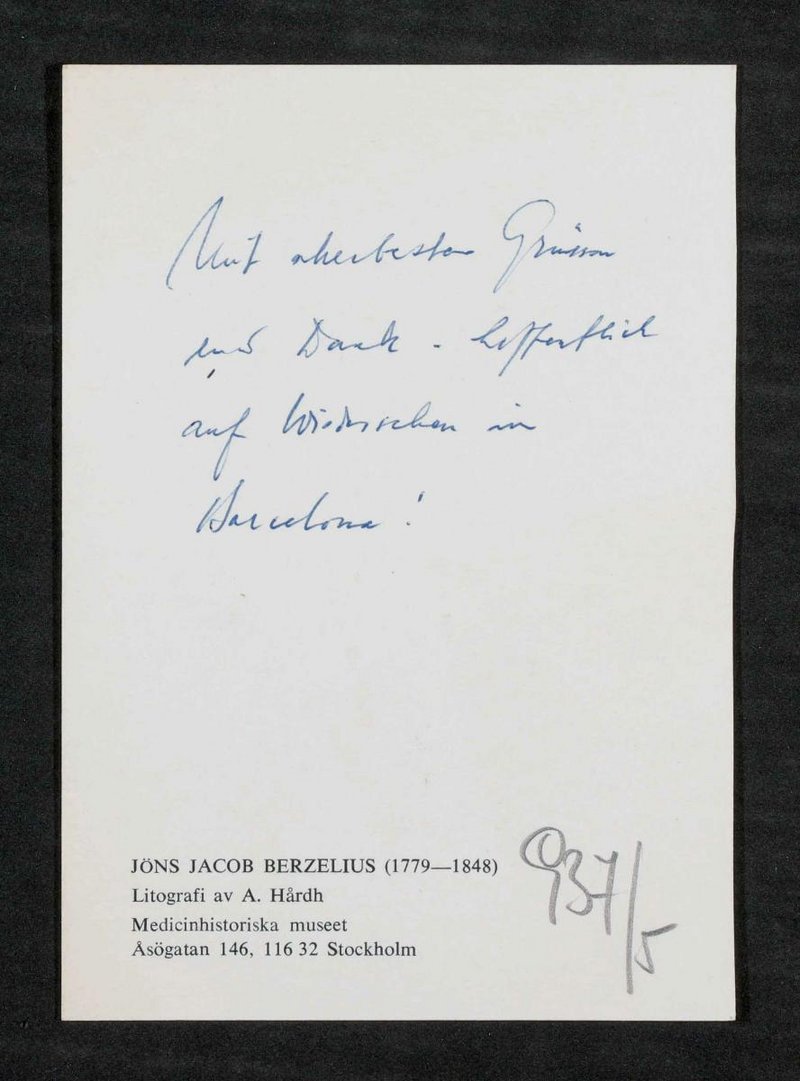 Mit allerbesten Grüssen
und Dank - hoffentlich
auf Wiedersehen in
Barcelona!
JÖNS JACOB BERZELIUS (1779—1848)
Litografi av A. Hårdh
Medicinhistoriska museet
Åsögatan 146, 116 32 Stockholm
937/5